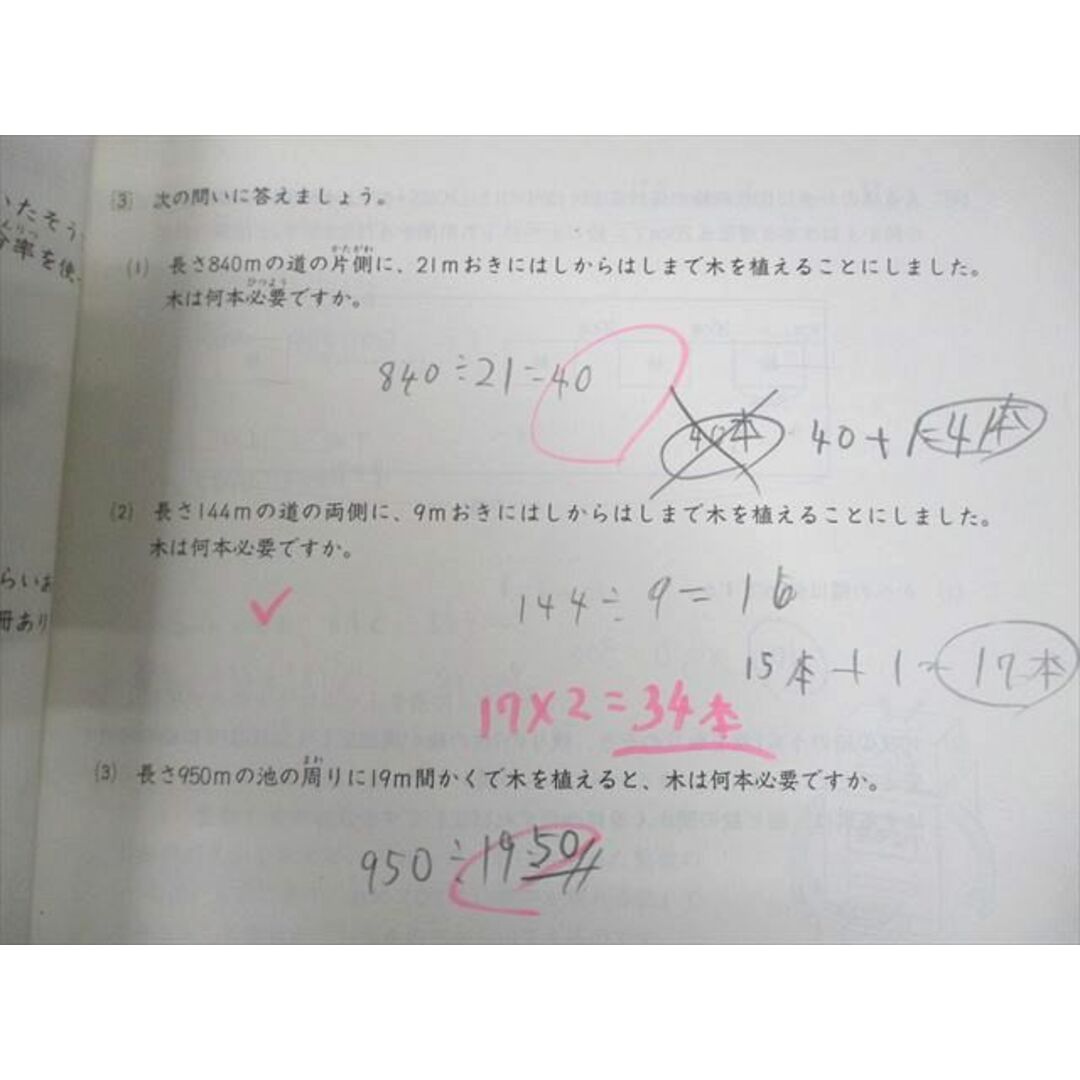 いたそう
んりつ
率を使、
(3) 次の問いに答えましょう。
かたがわ
(1) 長さ840mの道の片側に、21mおきにはしからはしまで木を植えることにしました。
ひつよう
木は何本必要ですか。
840÷21=40
40本 40+1=41本
(2) 長さ144mの道の両側に、9mおきにはしからはしまで木を植えることにしました。
木は何本必要ですか。
らいお
冊あり
144÷9=16
15本+1=17本
17×2=34本
まわ
(3) 長さ950mの池の周りに19m間かくで木を植えると、木は何本必要ですか。
950÷19=50